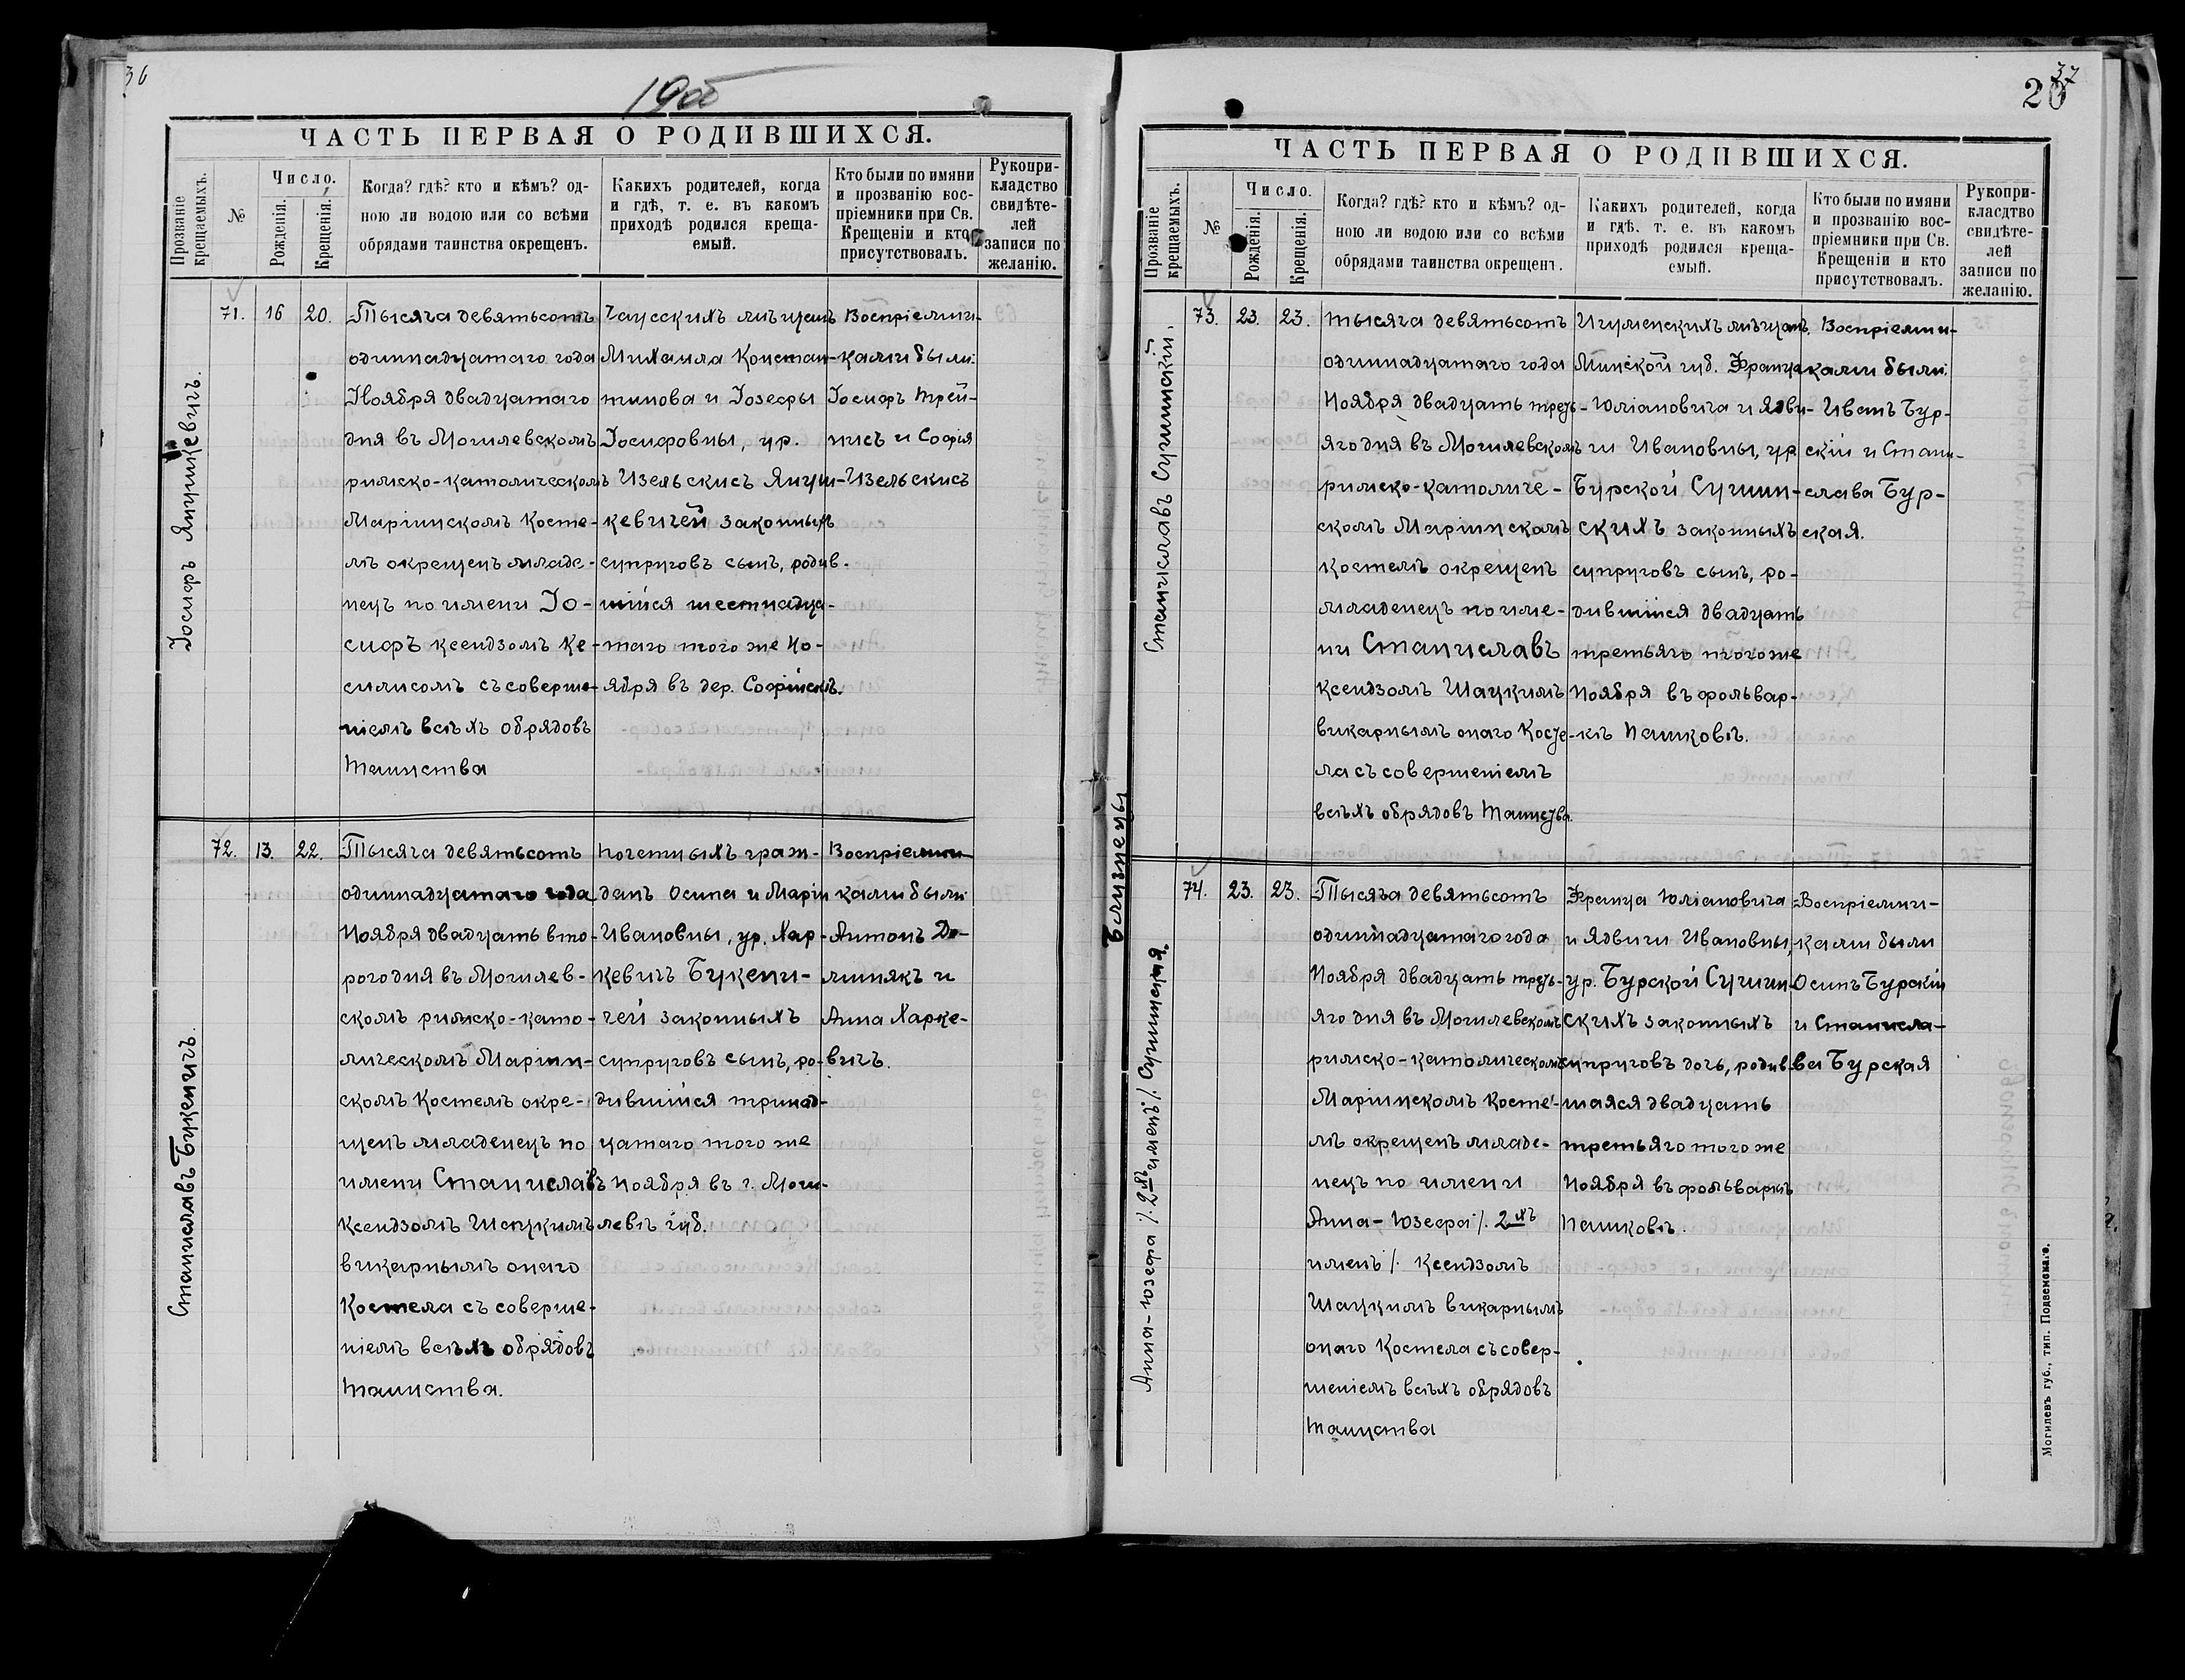 36
19об
ЧАСТЬ ПЕРВАЯ О РОДИВШИХСЯ.
Прозваніе крещаемыхъ.
№
Число.
Рожденія.
Крещенія.
Когда? гдѣ? кто и кѣмъ? од-
ною ли водою или со всѣми
обрядами таинства окрещенъ.
Какихъ родителей, когда
и гдѣ, т. е. въ какомъ
приходѣ родился креща-
емый.
Кто были по имяни
и прозванію вос-
пріемники при Св.
Крещеніи и кто
присутствовалъ.
Рукопри-
кладство
свидѣте-
лей
записи по
желанію.
Іосифъ Янушкевичъ.
71.
16
20.
Тысяча девятьсотъ
одиннадцатаго года
Ноября двадцатаго
дня въ Могилевскомъ
римско-католическомъ
Маріинскомъ Косте-
лѣ окрещенъ младе-
нецъ по имени Іо-
сифъ ксендзомъ Ке-
силисомъ съ соверше-
ніемъ всѣхъ обрядовъ
Таинства
Чаусскихъ мѣщанъ
Михаила Констан-
тинова и Іозефы
Іосифовны, ур.
Изельскисъ Януш-
кевичей законныхъ
супруговъ сынъ, родив-
шійся шестнадца-
таго того же Но-
ября въ дер. Софійскъ.
Воспріемни-
ками были:
Іосифъ Трей-
нисъ и Софія
Изельскисъ
Станиславъ Букеничъ.
72.
13.
22.
Тысяча девятьсотъ
одиннадцатаго года
Ноября двадцать вто-
рого дня въ Могилев-
скомъ римско-като-
лическомъ Маріин-
скомъ Костелѣ окре-
щенъ младенецъ по
имени Станиславъ
Ксендзомъ Шацкимъ
викарнымъ онаго
Костела съ соверше-
ніемъ всѣхъ обрядовъ
Таинства.
почетныхъ граж-
данъ Осипа и Маріи
Ивановны, ур. Хар-
кевичъ Букени-
чей законныхъ
супруговъ сынъ, ро-
дившійся тринад-
цатаго того же
Ноября въ г. Моги-
левѣ губ.
Воспріемни-
ками были
Антонъ До-
линякъ и
Анна Харке-
вичъ.
37
20
ЧАСТЬ ПЕРВАЯ О РОДИВШИХСЯ.
Прозваніе крещаемыхъ.
№
Число.
Рожденія.
Крещенія.
Когда? гдѣ? кто и кѣмъ? од-
ною ли водою или со всѣми
обрядами таинства окрещенъ.
Какихъ родителей, когда
и гдѣ, т. е. въ какомъ
приходѣ родился креща-
емый.
Кто были по имяни
и прозванію вос-
пріемники при Св.
Крещеніи и кто
присутствовалъ.
Рукопри-
класдтво
свидѣте-
лей
записи по
желанію.
Близнецы
Станиславъ Сушинскій.
73.
23.
23.
тысяча девятьсотъ
одиннадцатаго года
Ноября двадцать треть-
яго дня въ Могилевскомъ
римско-католиче-
скомъ Маріинскомъ
Костелѣ окрещенъ
младенецъ по име-
ни Станиславъ
ксендзомъ Шацкимъ
викарнымъ онаго Косте-
ла съ совершеніемъ
всѣхъ обрядовъ Таинства.
Игуменскихъ мѣщанъ,
Минской губ. Франца
Юліановича и Ядви-
ги Ивановны, ур
Бурской Сушин-
скихъ законныхъ
супруговъ сынъ, ро-
дившійся двадцать
третьяго того же
Ноября въ фольвар-
кѣ Пашковѣ.
Воспріемни-
ками были:
Иванъ Бур-
скій и Стани-
слава Бур-
ская.
Анна-Юзефа /. 2хъ именъ /. Сушинская.
74.
23.
23.
Тысяча девятьсотъ
одиннадцатаго года
Ноября двадцать треть-
яго дня въ Могилевскомъ
римско-католическомъ
Маріинскомъ Косте-
лѣ окрещенъ младе-
нецъ по имени
Анна-Юзефа /. 2хъ
именъ /. Ксендзомъ
Шацкимъ викарнымъ
онаго Костела съ совер-
шеніемъ всѣхъ обрядовъ
Таинства
Франца Юліановича
и Ядвиги Ивановны,
ур. Бурской Сушин-
скихъ законныхъ
супруговъ дочь, родив-
шаяся двадцать
третьяго того же
Ноября въ фольваркѣ
Пашковѣ.
Воспріемни-
ками были
Осипъ Бурскій
и Станисла-
ва Бурская
Могилевъ губ., тип. Подземскаго.